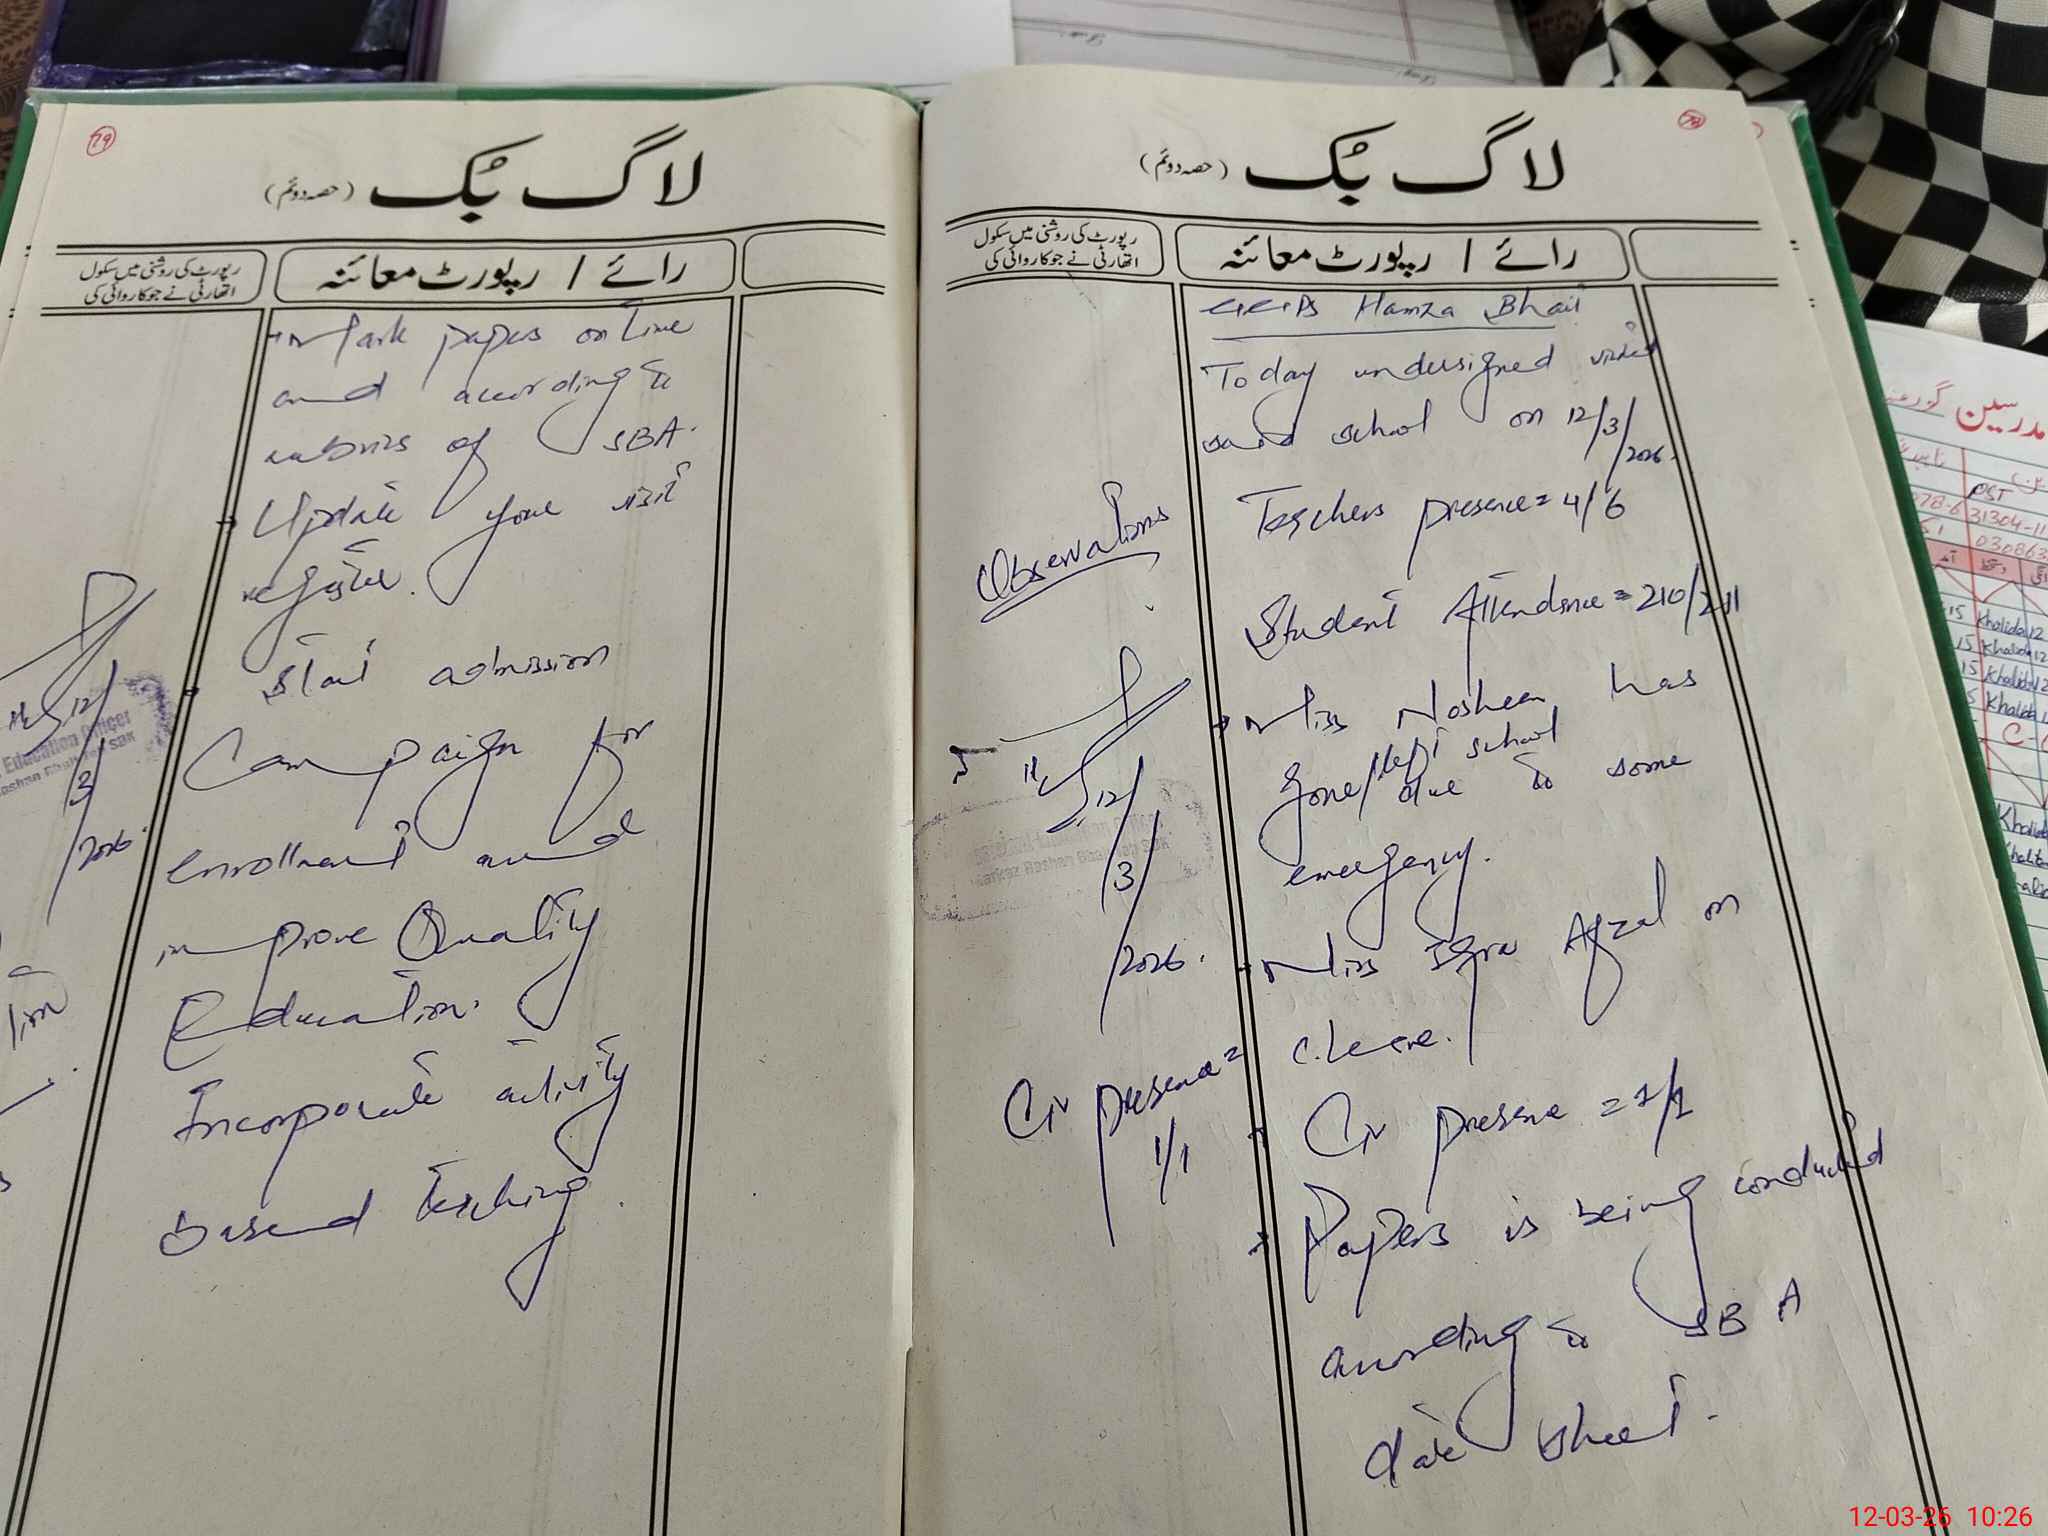 79
لاگ بُک (حصہ دوئم)
رپورٹ کی روشنی میں سکول
اتھارٹی نے جو کاروائی کی
رائے / رپورٹ معائنہ
→ Mark papers on time
and according to
rubrics of SBA.
→ Update your visit
register.
→ Start admission
Campaign for
enrollment and
improve Quality
Education.
Incorporate activity
based teaching.
12/3/2026
Education Officer
78
لاگ بُک (حصہ دوئم)
رپورٹ کی روشنی میں سکول
اتھارٹی نے جو کاروائی کی
رائے / رپورٹ معائنہ
GGPS Hamza Bhai
Today undersigned visited
said school on 12/3/2026.
Observations
Teachers presence = 4/6
Student Attendence = 210/211
→ Miss Nosheen has
gone/left school
due to some
emergency.
→ Miss Iqra Afzal on
c.leave.
→ C.IV presence = 1/1
→ Papers is being conducted
according to SBA
date sheet.
12/3/2026.
C.IV presence =
1/1
مدرسین
PST
31304-11
030863
Khalida
Khalida
Khalida
Khalida
12-03-26 10:26